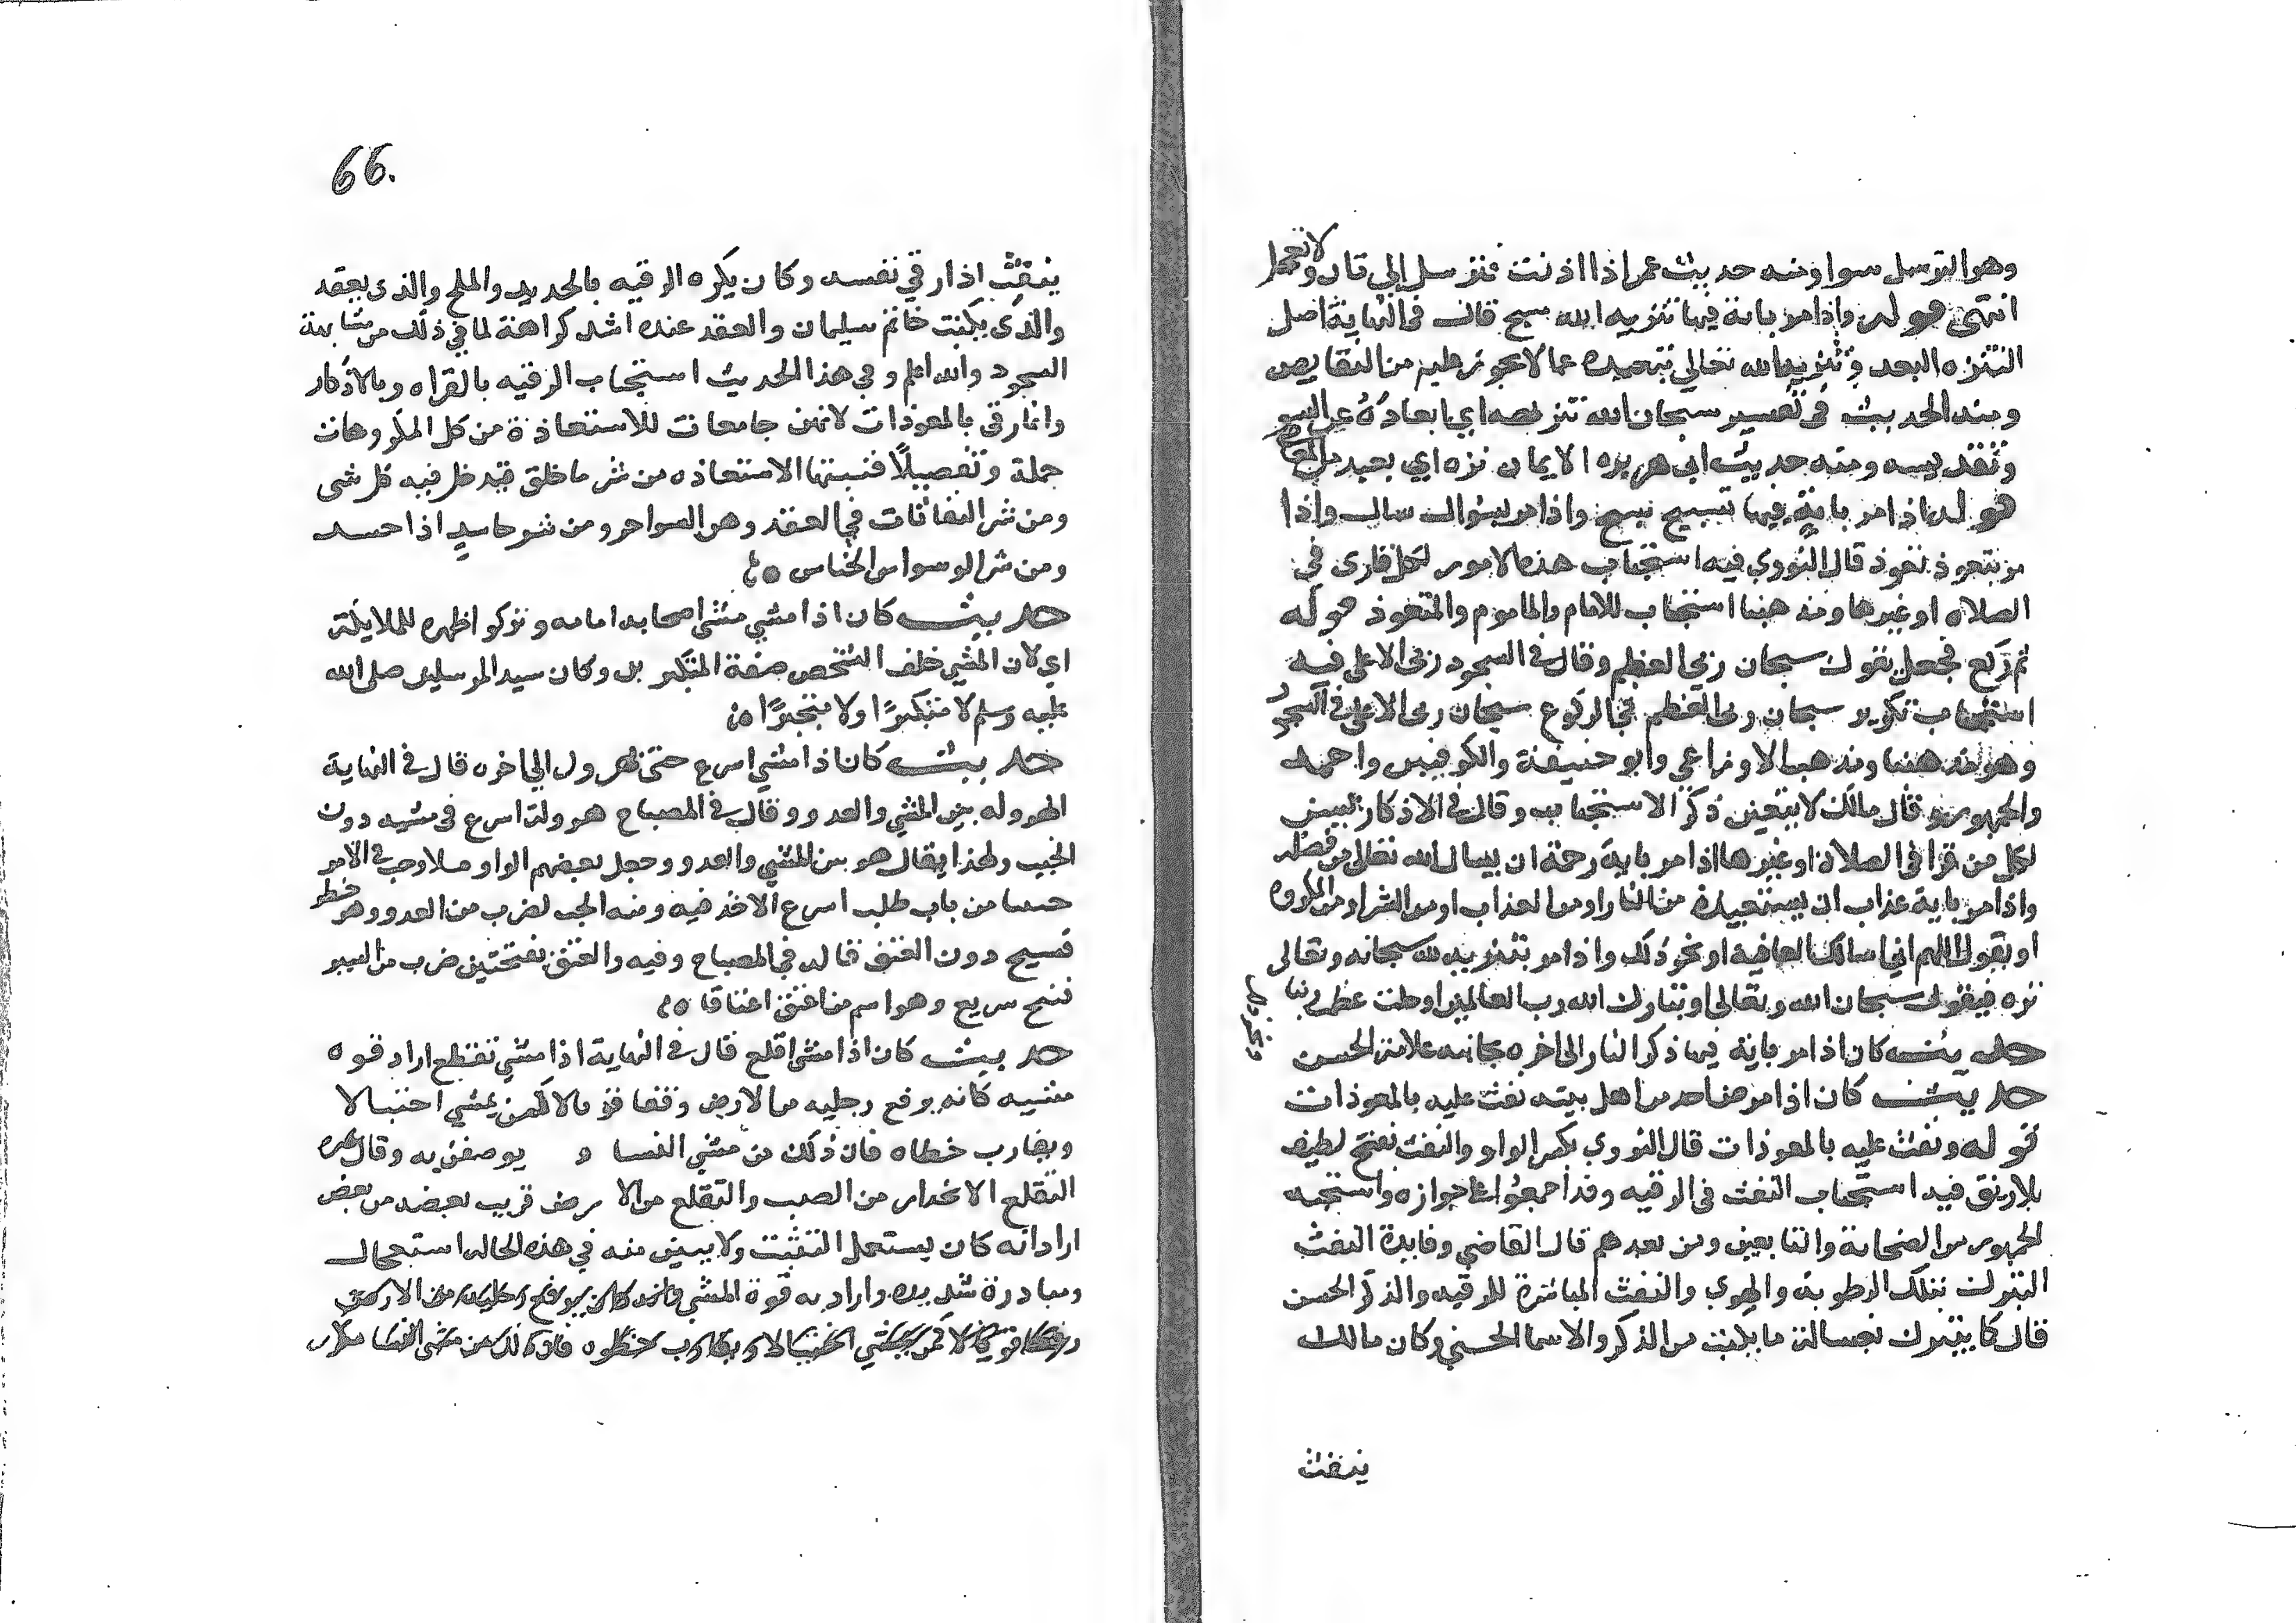 وهو الترسل سوا ومنه حديث عمر اذا اذنت فترسل اي تان ولا تعجل
انتهى قوله واذا مر باية فيها تنزيه الله سبح قال في النهاية اصل
التنزه البعد وتنزيه الله تعالى تبعيده عما لا يجوز عليه من النقايص
ومنه الحديث في تفسير سبحان الله تنزيهه اي ابعاده عن السو
وتقديسه ومنه حديث ابي هريره الايمان نزه اي بعيد من المعاصي
قوله اذا مر باية فيها تسبيح سبح واذا مر بسوال سال واذا
مر بتعوذ تعوذ قال النووي فيه استحباب هذه الامور لكل قارى في
الصلاه او غيرها ومذهبنا استحباب للامام والماموم والمنفرد قوله
ثم ركع فجعل يقول سبحان ربى العظيم وقال في السجود ربى الاعلى فيه
استحباب تكرير سبحان ربى العظيم في الركوع سبحان ربى الاعلى في السجود
وهو مذهبنا ومذهب الاوزاعي وابو حنيفة والكوفيين واحمد
والجمهور وقال مالك لا يتعين ذكر الاستحباب وقال في الاذكار يسن
لكل من قرا في الصلاة او غيرها اذا مر باية رحمة ان يسال الله تعالى من فضله
واذا مر باية عذاب ان يستعيذ من النار او من العذاب او من الشر او من المكروه
او يقول اللهم اني اسالك العافية او نحو ذلك واذا مر بتنزيه لله سبحانه وتعالى
نزه فيقول سبحان الله وتعالى او تبارك الله رب العالمين او جلت عظمة ربنا
ونحو ذلك
حديث كان اذا مر باية فيها ذكر النار الى اخره بجانبه علامة الحسن
حديث كان اذا مرض احد من اهل بيته نفث عليه بالمعوذات
قوله ونفث عليه بالمعوذات قال النووي بكسر الواو والنفث نفخ لطيف
بلا ريق فيه استحباب النفث في الرقيه وقد اجمعوا على جوازه واستحبه
الجمهور من الصحابة والتابعين ومن بعدهم قال القاضي وفايدة النفث
التبرك بتلك الرطوبة والهوي والنفث المباشرة للرقيه والذكر الحسن
قال كما يتبرك بغسالة ما يكتب من الذكر والاسما الحسنى وكان مالك
ينفث
66.
ينفث اذا رقي نفسه وكان يكره الرقيه بالحديد والملح والذى يعقد
والذي يكتب خاتم سليمان والعقد عنده اشد كراهة لما في ذلك من مشابهة
السحر والله اعلم وفي هذا الحديث استحباب الرقيه بالقراه وبالاذكار
وانما رقي بالمعوذات لانهن جامعات للاستعاذة من كل المكروهات
جملة وتفصيلا ففيها الاستعاذه من شر ما خلق فيدخل فيه كل شى
ومن شر النفاثات في العقد وهن السواحر ومن شر حاسد اذا حسد
ومن شر الوسواس الخناس
حديث كان اذا مشي مشى اصحابه امامه وتركوا ظهره للملايكة
اي لان المشي خلف الشخص صفة المتكبرين وكان سيد المرسلين صلى الله
عليه وسلم لا متكبرا ولا متجبرا
حديث كان اذا مشي اسرع حتى يهرول الى اخره قال في النهاية
الهروله بين المشي والعدو وقال في المصباح هرولة اسرع في مشيه دون
الخبب ولهذا يقال هو بين المشي والعدو وجعل بعضهم الواو
من باب طلب اسرع الاخذ فيه ومنه الخبب لضرب من العدو وهو خطو
فسيح دون العنق قاله في المصباح وفيه والعنق بفتحتين ضرب من السير
فسيح سريع وهو اسم من اعنق اعناقا
حديث كان اذا مشى اقلع قال في النهاية اذا مشي تقلع اراد قوه
مشيه كانه يرفع رجليه من الارض رفعا قويا لا كمن يمشي اختيالا
ويقارب خطاه فان ذلك من مشي النسا و يوصفن به وقال غيره
التقلع الانحدار من الصبب والتقلع من الارض قريب بعضه من بعض
اراد انه كان يستعمل التثبت ولا يبين منه في هذه الحاله استعجال
ومبادرة شديده واراد به قوة المشي وانه كان يرفع رجليه من الارض
رفعا قويا لا كمن يمشي اختيالا ويقارب خطاه فان ذلك من مشى النسا